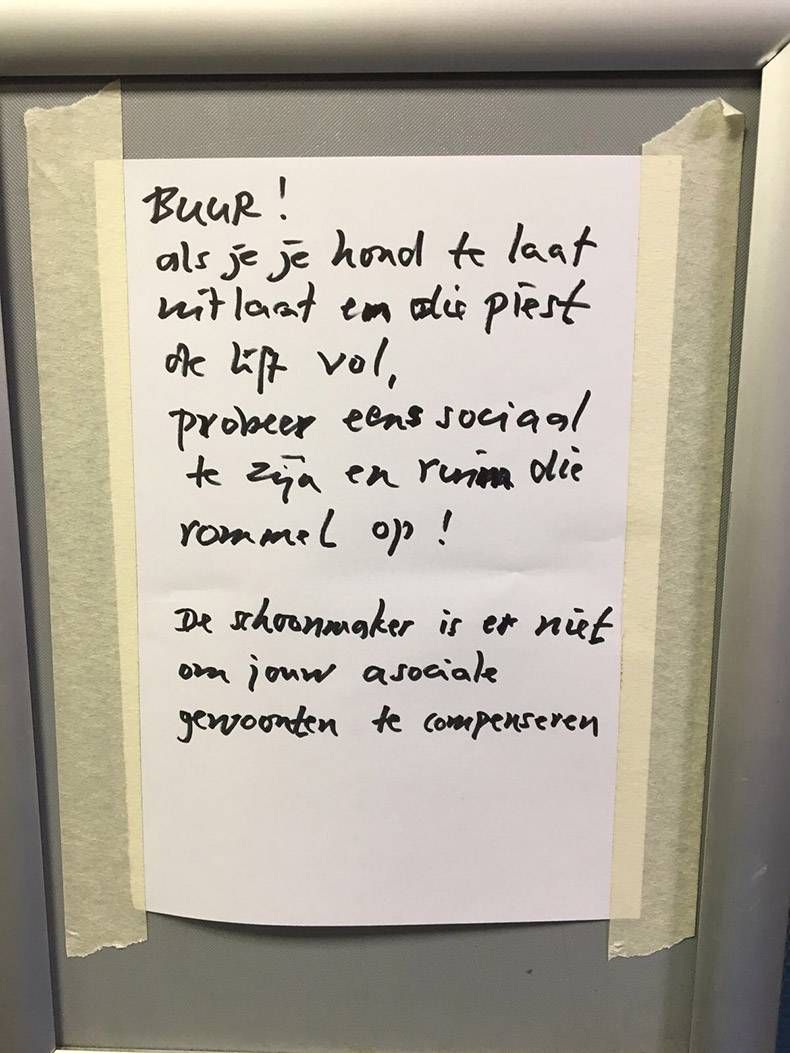 BUUR!
als je je hond te laat
uitlaat en die piest
de lift vol,
probeer eens sociaal
te zijn en ruim die
rommel op!
De schoonmaker is er niet
om jouw asociale
gewoonten te compenseren